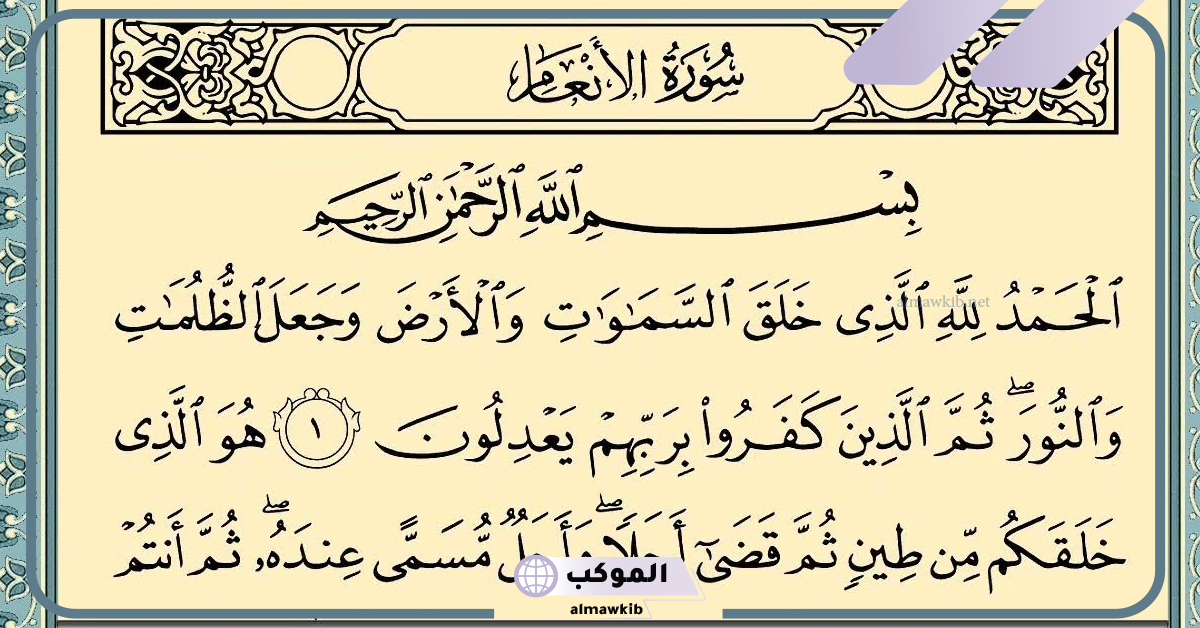 سُورَةُ الأَنْعَامِ
بِسْمِ ٱللَّهِ ٱلرَّحْمَٰنِ ٱلرَّحِيمِ
ٱلْحَمْدُ لِلَّهِ ٱلَّذِى خَلَقَ ٱلسَّمَٰوَٰتِ وَٱلْأَرْضَ وَجَعَلَ ٱلظُّلُمَٰتِ
almawkib.net
وَٱلنُّورَ ۖ ثُمَّ ٱلَّذِينَ كَفَرُوا۟ بِرَبِّهِمْ يَعْدِلُونَ ١ هُوَ ٱلَّذِى
خَلَقَكُم مِّن طِينٍ ثُمَّ قَضَىٰٓ أَجَلًا ۖ وَأَجَلٌ مُّسَمًّى عِندَهُۥ ۖ ثُمَّ أَنتُمْ
الموكب
almawkib